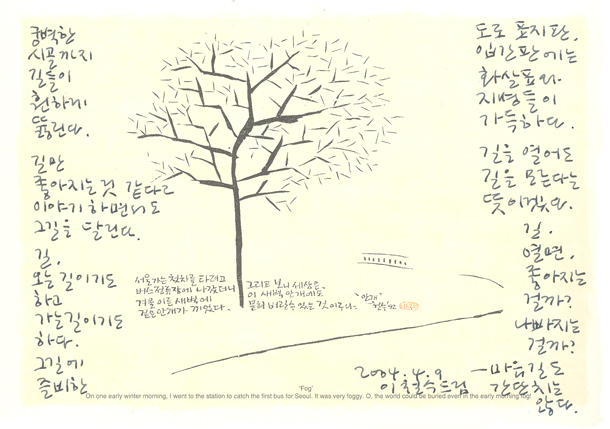 궁벽한
시골까지
길들이
훤하게
뚫린다.
길만
좋아지는 것 같다고
이야기하면서도
그길을 달린다.
길.
오는 길이기도
하고
가는 길이기도
하다.
그길에
즐비한
도로 표지판.
입간판에는
화살표와
지명들이
가득하다.
길을 열어도
길을 모른다는
뜻이겠다.
길.
열면,
좋아지는
걸까?
나빠지는
걸까?
마음길도
간단치는
않다.
2004.4.9
이철수드림
서울가는 첫차를 타려고
버스정류장에 나갔더니
겨울 이른 새벽에
짙은안개가 끼었다.
그러고 보니 세상은,
이 새벽 안개에도
묻혀 버릴수 있는 것이로구나
"안개"
'Fog'
On one early winter morning, I went to the station to catch the first bus for Seoul. It was very foggy. O, the world could be buried even in the early morning fog!